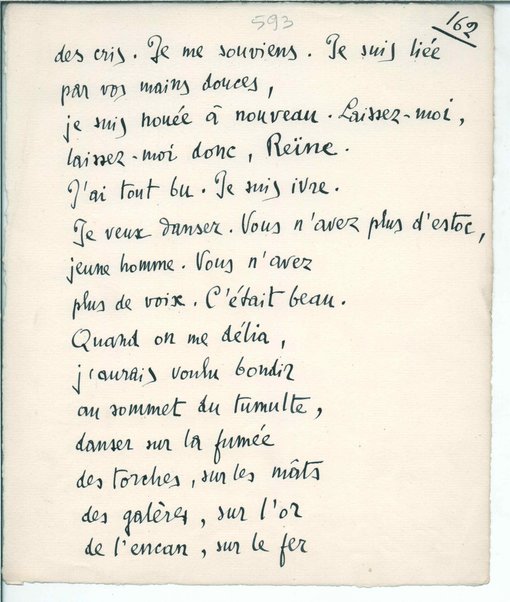 593
162
des cris. Je me souviens. Je suis liée
par vos mains douces,
je suis nouée à nouveau. Laissez-moi,
laissez-moi donc, Reïne.
J'ai tout bu. Je suis ivre.
Je veux danser. Vous n'avez plus d'estoc,
jeune homme. Vous n'avez
plus de voix. C'était beau.
Quand on me délia,
j'aurais voulu bondir
au sommet du tumulte,
danser sur la fumée
des torches, sur les mâts
des galères, sur l'or
de l'encan, sur le fer